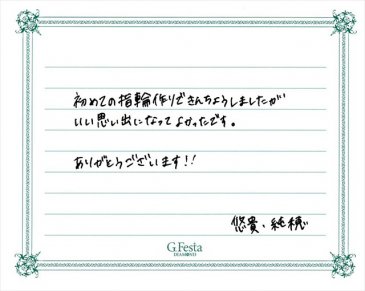 初めての指輪作りできんちょうしましたが
いい思い出になってよかったです。
ありがとうございます!!
悠貴・純穂
G.Festa
DIAMOND